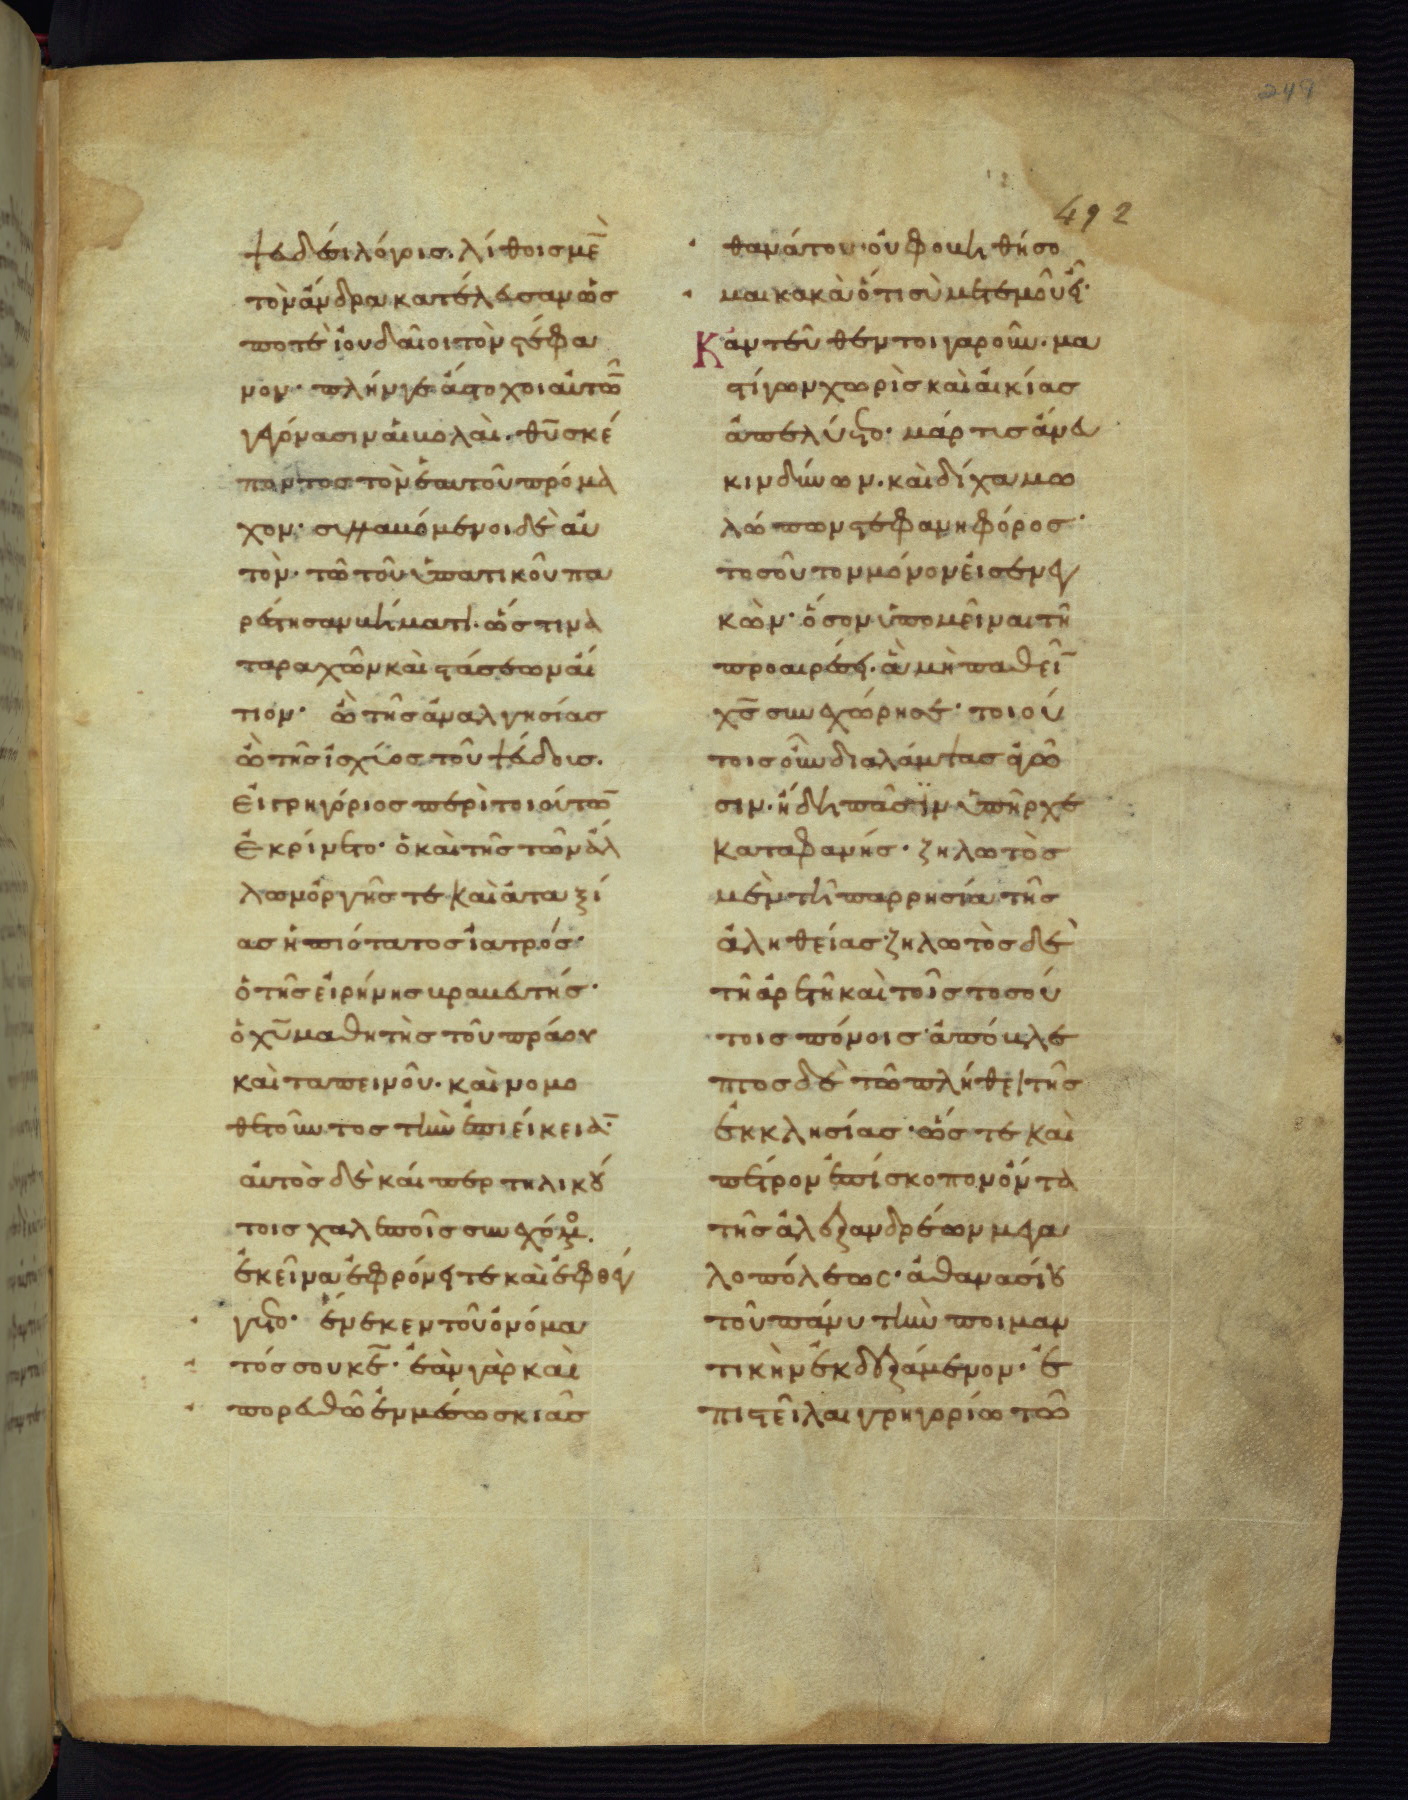 249
492
ψευδεσιλόγοις. λίθοις μὲν
τὸν ἄνδρα κατέλευσαν ὥς
ποτε ἰουδαῖοι τὸν στέφα
νον· πλὴν γε ἄστοχοι αὐτῶν
γεγόνασιν αἱ βολαὶ. θυ σκέ
ποντος τὸν ἑαυτοῦ πρόμα
χον· σινιαμόμενοι δὲ αὐ
τὸν τῶ τοῦ ὑπατικοῦ πα
ρέστησαν βήματι. ὥς τινα
ταραχῶν καὶ στάσεων αἴ
τιον· ὢ τῆς ἀναλγησίας
ὢ τῆς ἰσχύος τοῦ ψεύδους.
εἰ γρηγόριος περὶ τοιούτων
ἐκρίνετο· ὁ καὶ τῆς τῶν ἄλ
λων ὀργῆς τε καὶ ἀταξί
ας ἠπιότατος ἰατρός·
ὁ τῆς εἰρήνης βραβευτής·
ὁ χυ μαθητὴς τοῦ πράου
καὶ ταπεινοῦ. καὶ νομο
θετοῦντος τὴν ἐπιείκειαν·
αὐτὸς δὲ καίπερ τηλικού
τοις χαλεποῖς συνεχόμενος.
ἐκεῖνα ἐφρόνει τε καὶ ἐφθέγ
γετο· ἕνεκεν τοῦ ὀνόμα
τός σου κε· ἐὰν γὰρ καὶ
πορευθῶ ἐν μέσω σκιᾶς
θανάτου· οὐ φοβηθήσο
μαι κακὰ ὅτι σὺ μετ' ἐμοῦ εἶ·
Κἀντεῦθέν τοιγαροῦν. μα
στίγων χωρὶς καὶ αἰκίας
ἀπελύετο· μάρτις ἄνευ
κινδύνων. καὶ δίχα μω
λώπων στεφανηφόρος·
τοσοῦτον μόνον εἰσενεγ
κὼν· ὅσον ὑπομεῖναι τῆ
προαιρέσει. ἃ μὴ παθεῖν
χς συνεχώρησε· τοιού
τοις οὖν διαλάμψας ἀγῶ
σιν. ἤδη πᾶσιν ὑπῆρχε
καταφανής· ζηλωτὸς
μὲν τῆ παρρησία τῆς
ἀληθείας· ζηλωτὸς δὲ
τῆ ἀρετῆ καὶ τοῖς τοσού
τοις πόνοις· ἀπόβλε
πτος δὲ τῶ πλήθει τῆς
ἐκκλησίας· ὥστε καὶ
πέτρον ἐπίσκοπον ὄντα
τῆς ἀλεξανδρέων μεγα
λοπόλεως· ἀθανασίου
τοῦ πάνυ τὴν ποιμαν
τικὴν ἐκδεξάμενον· ἐ
πιστεῖλαι γρηγορίω τῶ